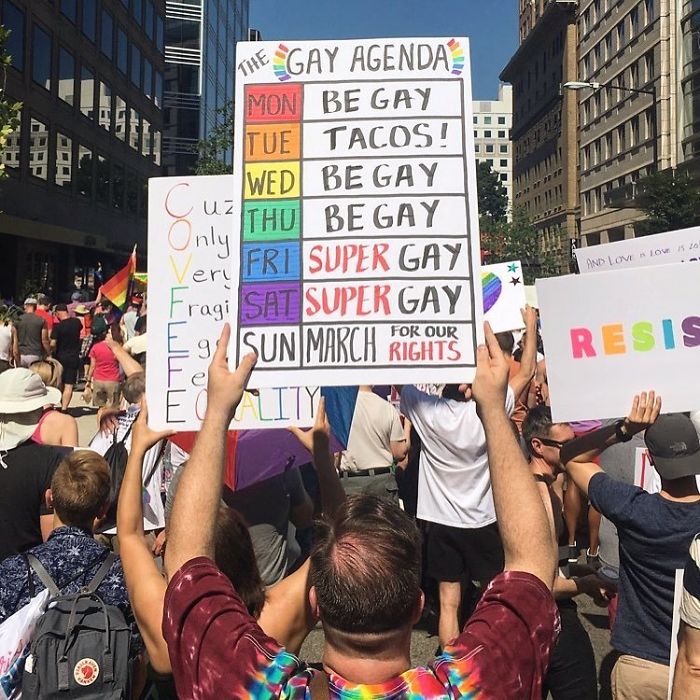 THE GAY AGENDA
MON BE GAY
TUE TACOS!
WED BE GAY
THU BE GAY
FRI SUPER GAY
SAT SUPER GAY
SUN MARCH FOR OUR RIGHTS
Cuz
Only
Very
Fragi
E
F
E EQUALITY
AND LOVE IS LOVE IS
RESIS